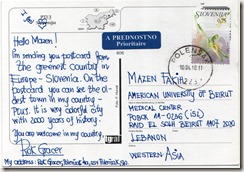 A PREDNOSTNO
Prioritaire
SLOVENIJA
TOLMIN
Hello Mazen!
I'm sending you postcard from
the greenest country in
Europe - Slovenia. On the
postcard you can see the ol-
dest town in my country -
Ptuj. It is very colorful city
with 2000 years of history.
You are welcome in my country.
Rok Gracer
My address: Rok Gracer,
MAZEN TAKIH
AMERICAN UNIVERSITY OF BEIRUT
MEDICAL CENTER
POBOX 11-0236 (ISL)
RIAD EL SOLH BEIRUT 1107 2020
LEBANON
WESTERN ASIA